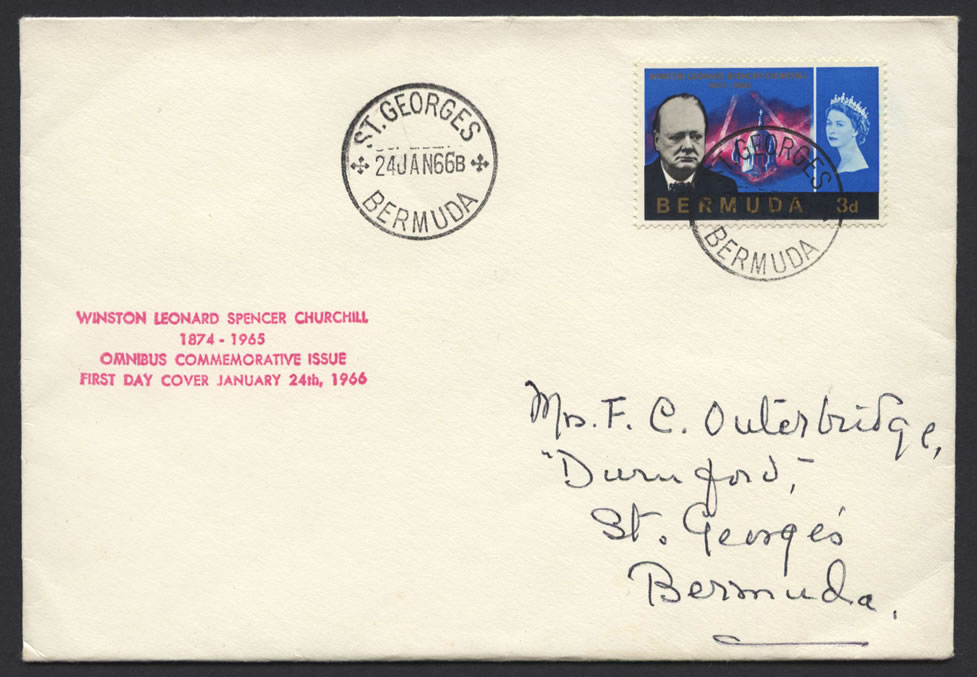 ST. GEORGES
24 JAN 66 B
BERMUDA
WINSTON LEONARD SPENCER CHURCHILL
BERMUDA 3d
ST. GEORGES
BERMUDA
WINSTON LEONARD SPENCER CHURCHILL
1874 - 1965
OMNIBUS COMMEMORATIVE ISSUE
FIRST DAY COVER JANUARY 24th, 1966
Mrs. F. C. Outerbridge,
"Durnford,"
St. George's
Bermuda.